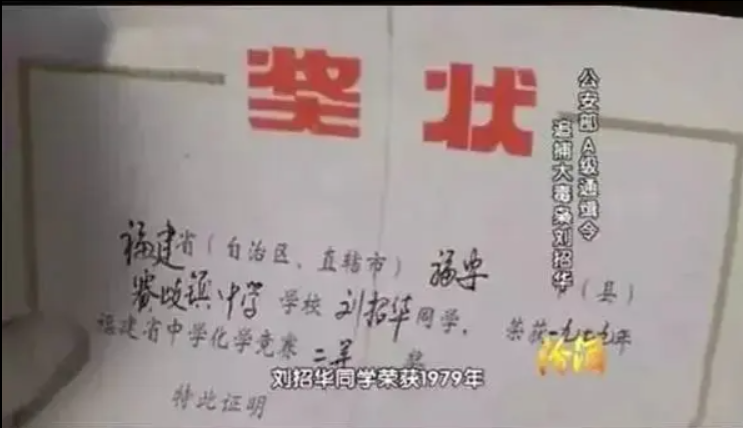 奖状
公安部A级通缉令
追捕大毒枭刘招华
福建省（自治区、直辖市）福安市（县）
赛岐镇中学学校刘招华同学，荣获一九七九年
福建省中学化学竞赛二等奖
刘招华同学荣获1979年
特此证明